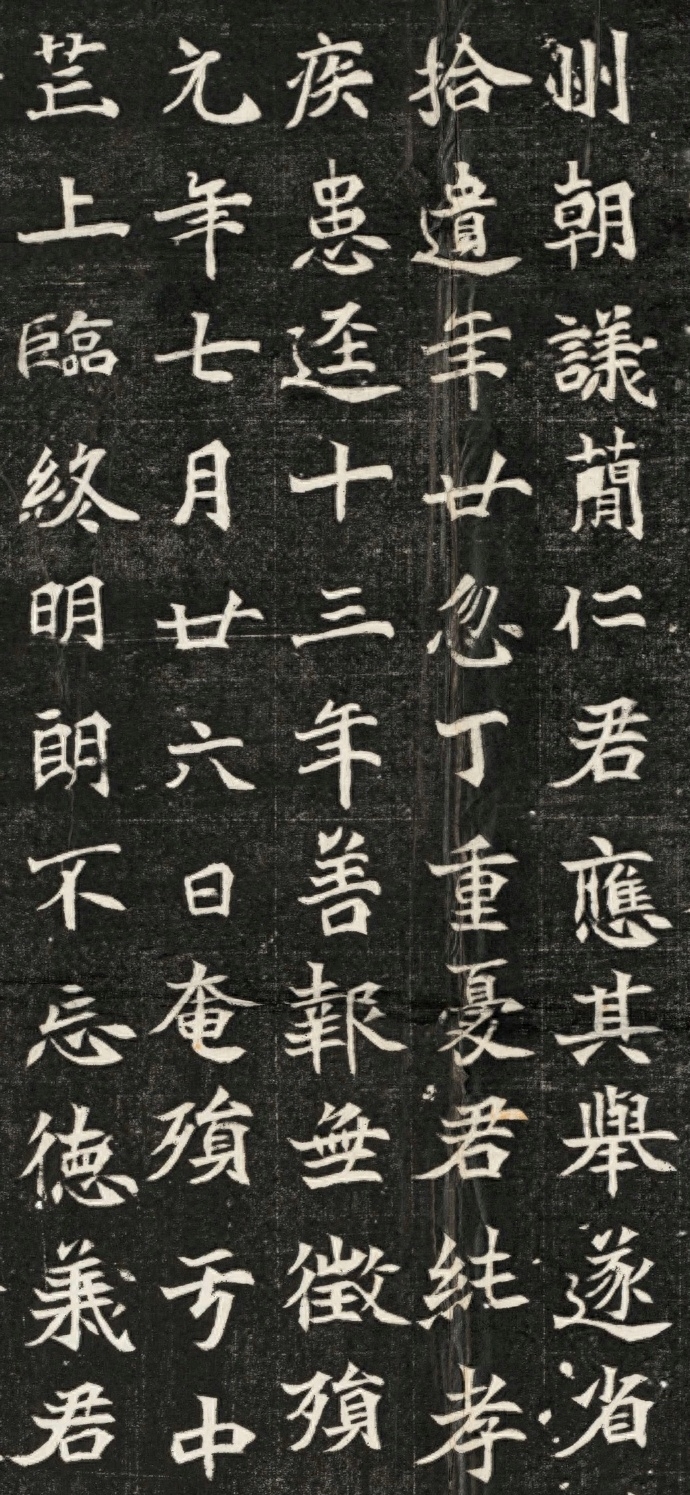 州朝議蕳仁君應其舉遂省
拾遺年廿忽丁重憂君純孝
疾患迳十三年善報無徵殞
元年七月廿六日奄殞亏中
芒上臨終明朗不忘徳義君